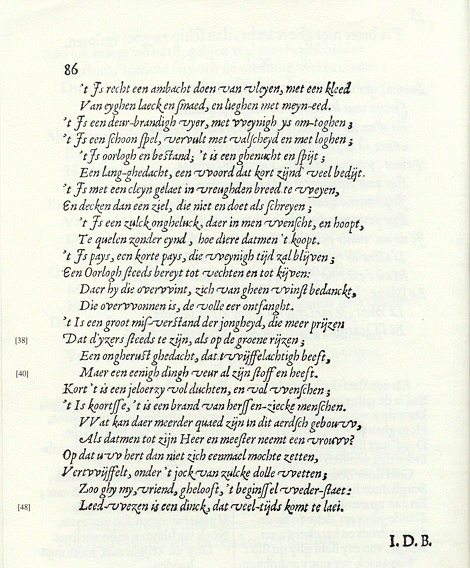 86
't Js recht een ambacht doen van vleyen, met een kleed
Van eyghen laeck en smaed, en lieghen met meyn-eed.
't Js een deur-brandigh vyer, met vveynigh ys om-toghen;
't Js een schoon spel, vervult met valscheyd en met loghen;
't Js oorlogh en bestand; 't is een ghenucht en spijt;
Een lang-ghedacht, een vvoord dat kort zijnd' veel bedijt.
't Js met een cleyn gelaet in vreughden breed te vveyen,
En decken dan een ziel, die niet en doet als schreyen;
't Js een zulck ongheluck, daer in men vvenscht, en hoopt,
Te quelen zonder eynd, hoe diere datmen 't koopt.
't Js pays, een korte pays, die vveynigh tijd zal blijven;
Een Oorlogh steeds bereyt tot vechten en tot kijven:
Daer hy die overvvint, zich van gheen vvinst bedanckt,
Die overvvonnen is, de volle eer ontfanght.
't Is een groot mis-verstand der jongheyd, die meer prijzen
[38] Dat d'yzers steeds te zijn, als op de groene rijzen;
Een ongherust ghedacht, dat tvvijffelachtigh beeft,
[40] Maer een eenigh dingh veur al zijn stoff en heeft.
Kort 't is een jeloerzy vol duchten, en vol vvenschen;
't Is koortsse, 't is een brand van herssen-ziecke menschen.
VVat kan daer meerder quaed zijn in dit aerdsch gebouvv,
Als datmen tot zijn Heer en meester neemt een vrouvv?
Op dat uvv hert dan niet zich eenmael mochte zetten,
Vertvvijffelt, onder 't jock van zulcke dolle vvetten;
Zoo ghy my, vriend, ghelooft, 't beginssel vveder-staet:
[48] Leed-vvezen is een dinck, dat veel-tijds komt te laet.
I. D. B.